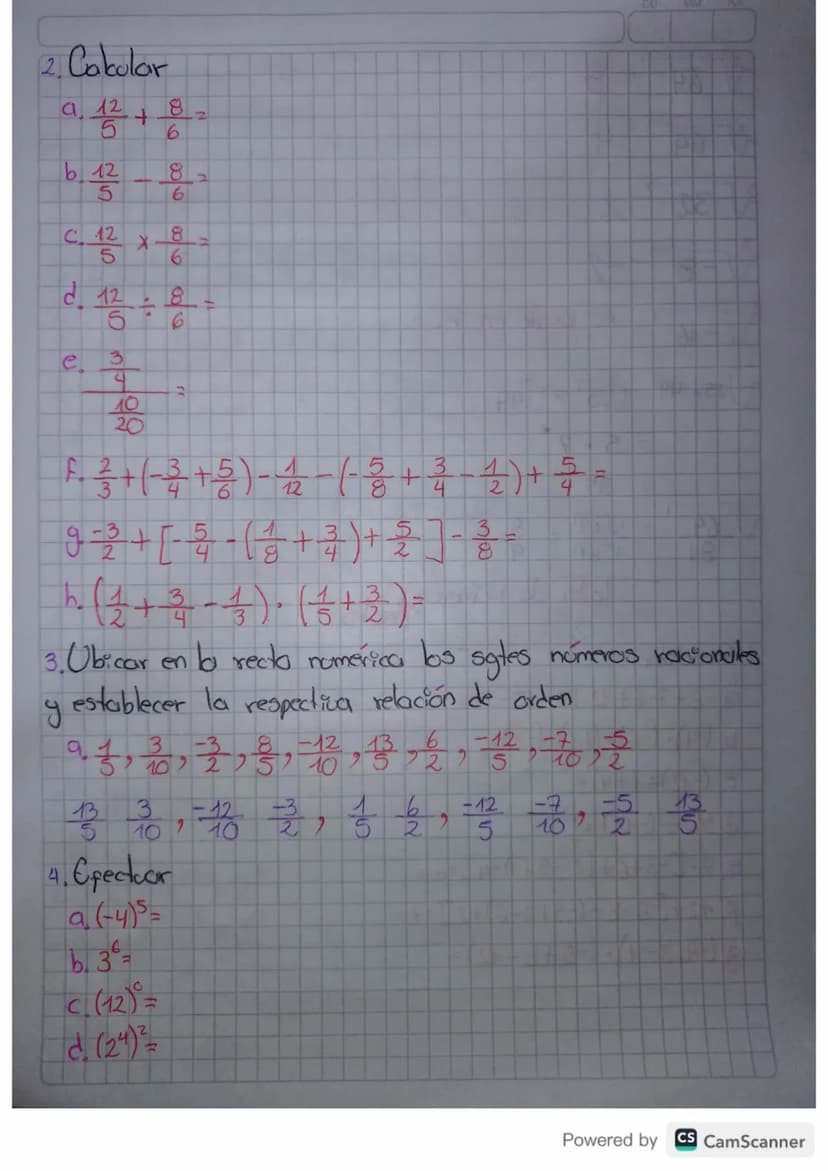 2. Calcular
a. 12/5 + 8/6 =
b. 12/5 - 8/6 =
c. 12/5 x 8/6 =
d. 12/5 ÷ 8/6 =
e. (3/4)/(10/20) =
f. 2/3 + (-3/4 + 5/6) - 1/12 - (-5/8 + 3/4 - 1/2) + 5/4 =
g. -3/2 + [-5/4 - (1/8 + 3/4) + 5/2] - 3/8 =
h. (1/2 + 3/4 - 1/3) · (1/5 + 3/2) =
3. Ubicar en la recta numérica los sgtes números racionales
y establecer la respectiva relación de orden
a. 1/5, 3/10, -3/2, 8/5, -12/10, 13/5, 6/2, -12/5, -7/10, -5/2
13/5 3/10, -12/10 -3/2, 1/5 6/2, -12/5 -7/10, -5/2 13/5
4. Efectuar
a. (-4)⁵ =
b. 3⁶ =
c. (12)⁰ =
d. (2⁴)² =
Powered by CS CamScanner